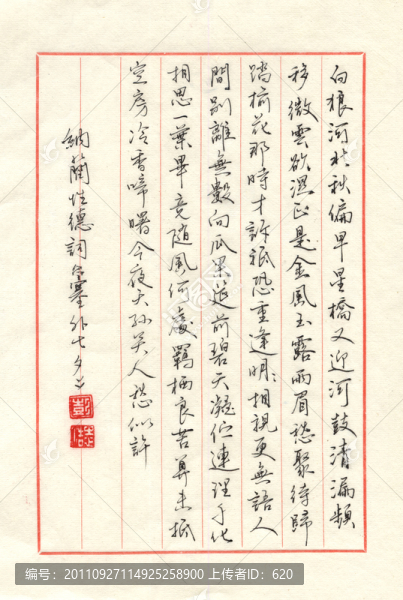 白狼河北秋偏早星橋又迎河鼓清漏頻
移微雲欲濕正是金風玉露兩眉愁聚待歸
踏榆花那時才訴祇恐重逢明〻相視更無語人
間別離無數向瓜果筵前碧天凝佇連理千花
相思一葉畢竟隨風何處羈栖良苦算未抵
空房冷香啼曙今夜天孫笑人愁似許
納蘭性德詞塞外七夕
编号：20110927114925258900 上传者ID：620